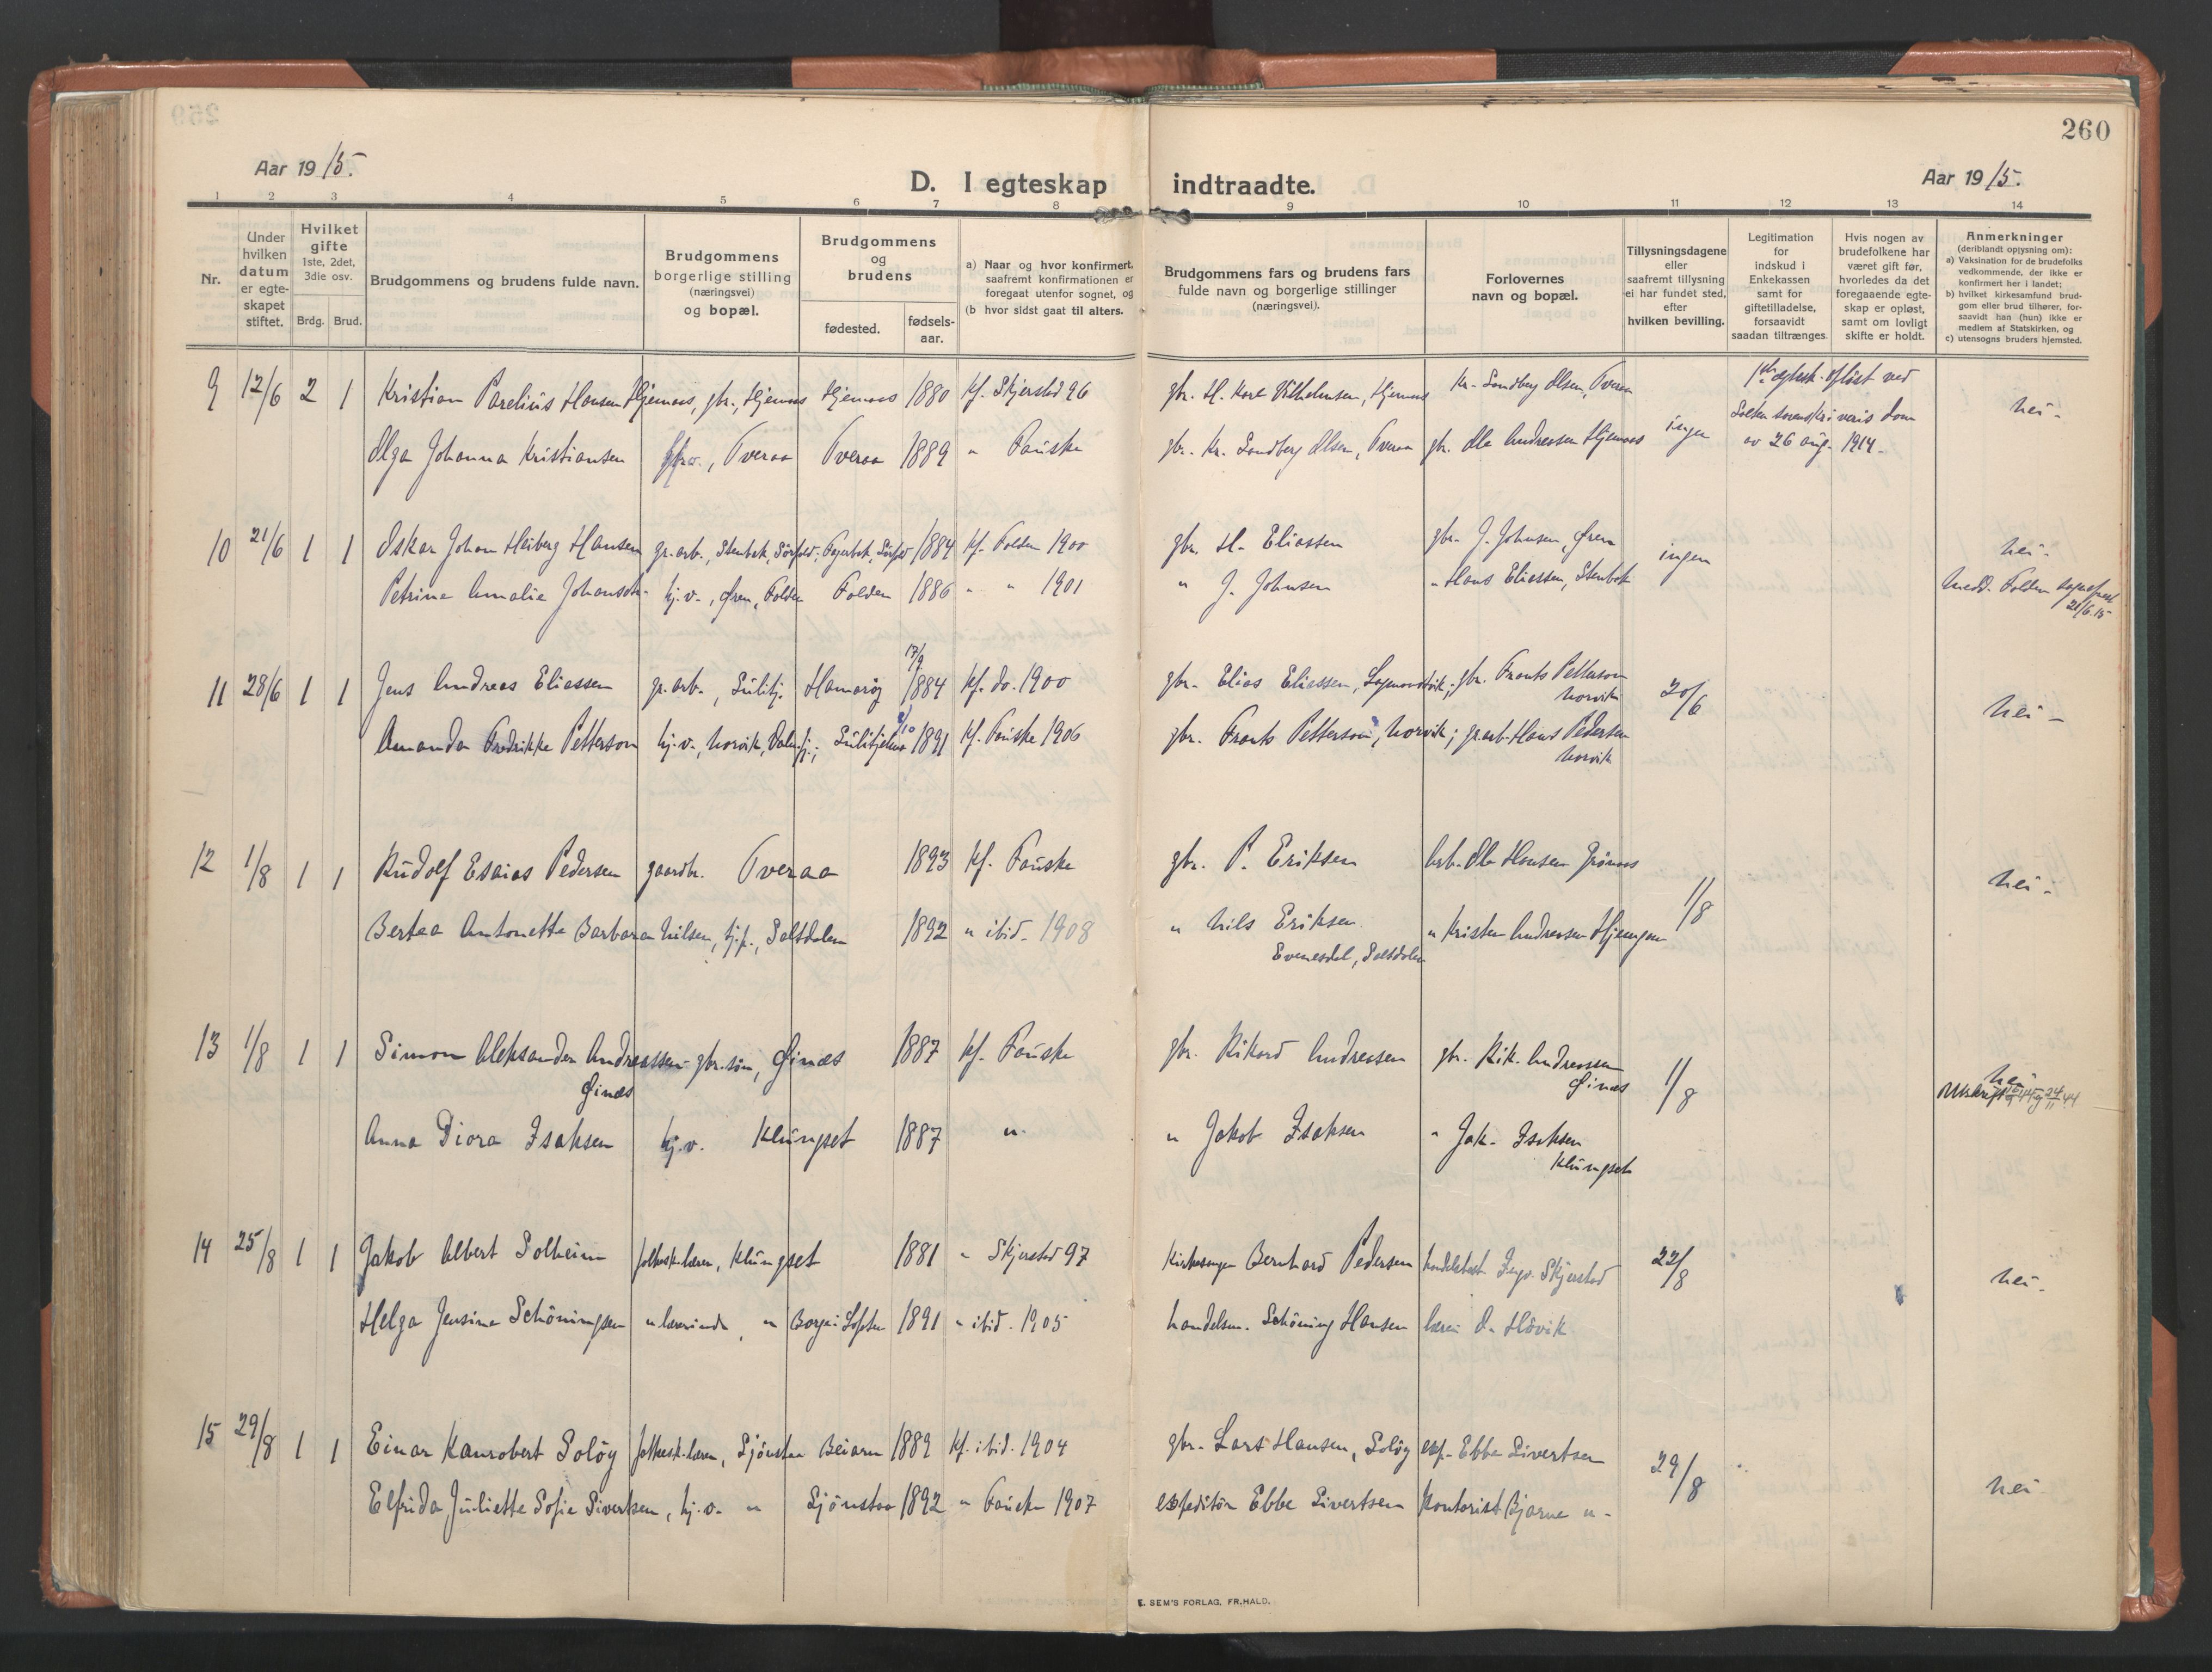 260
Aar 1915.
D. I egteskap indtraadte.
Aar 1915.
1 2 3 4 5 6 7 8 9 10 11 12 13 14
Nr.
Under hvilken datum er egteskapet stiftet.
Hvilket gifte 1ste, 2det, 3die osv.
Brdg. Brud.
Brudgommens og brudens fulde navn.
Brudgommens borgerlige stilling (næringsvei) og bopæl.
Brudgommens og brudens
fødested. fødsels-aar.
a) Naar og hvor konfirmert, saafremt konfirmationen er foregaat utenfor sognet, og
(b hvor sidst gaat til alters.
Brudgommens fars og brudens fars fulde navn og borgerlige stillinger (næringsvei).
Forlovernes navn og bopæl.
Tillysningsdagene eller saafremt tillysning ei har fundet sted, efter hvilken bevilling.
Legitimation for indskud i Enkekassen samt for giftetilladelse, forsaavidt saadan tiltrænges.
Hvis nogen av brudefolkene har været gift før, hvorledes da det foregaaende egteskap er opløst, samt om lovligt skifte er holdt.
Anmerkninger
(deriblandt opjysning om):
a) Vaksination for de brudefolks vedkommende, der ikke er konfirmert her i landet;
b) hvilket kirkesamfund brudgom eller brud tilhører, forsaavidt han (hun) ikke er medlem af Statskirken, og
c) utensogns bruders hjemsted.
9 12/6 2 1 Kristian Parelius Hansen Hjemaas, gbr., Hjemaas Hjemaas 1880 kf. Skjerstad 96 gbr. H. Karl Vilhelmsen, Hjemaas Kr. Sandberg Olsen, Tveraa ingen 1ste egtesk. opløst ved Salten sorenskriveris dom av 26 aug. 1914. nei.
Olga Johanna Kristiansen Tveraa Tveraa 1889 " Fauske gbr. Kr. Sandberg Olsen, Tveraa gbr. Ole Andreasen Hjemaas
10 21/6 1 1 Oskar Johan Heiberg Hansen gr.arb., Stenbak, Sörfold Fagerbak, Sörfold 1884 kf. Folden 1900 gbr. H. Eliassen gbr. J. Johnsen, Øren ingen nei.
Petrine Amalie Johansdtr. hj.v., Øren, Folden Folden 1886 " " 1901 " J. Johnsen " Hans Eliassen, Stenbak Medd. Folden sogneprest 21/6.15
11 28/6 1 1 Jens Andreas Eliassen gr.arb., Sulitj. Hamarøy 17/9 1884 kf. do. 1900 gbr. Elias Eliassen, gbr. Frants Petterson Norvik 20/6 nei.
Amanda Fredrikke Petterson hj.v., Norvik, Sulitjelma 1891 kf. Fauske 1906 gbr. Frants Petterson, Norvik; gr.arb. Hans Pedersen Norvik
12 1/8 1 1 Rudolf Esaias Pedersen gaardbr. Tveraa 1893 kf. Fauske gbr. P. Eriksen arb. Ole Hansen Grönaas 1/8 nei.
Bertea Antonette Barbara Nilsen, tj.p., Saltdalen 1892 " ibid. 1908 " Nils Eriksen Evenesdal, Saltdalen " Kristen Andreasen Hjemgam
13 1/8 1 1 Simon Aleksander Andreassen Øinæs gbr.sön, Øinæs 1887 kf. Fauske gbr. Rikard Andreasen gbr. Rik. Andreassen Øines 1/8 nei
Utskrift 24/11 44
Anna Diora Isaksen hj.v. Klungset 1887 " " Jakob Isaksen " Jak. Isaksen Klungset
14 25/8 1 1 Jakob Albert Solheim folkesk.lærer, Klungset 1881 " Skjerstad 97 Kirkesanger Bernhard Pedersen handelsbest. Ingv. Skjerstad 22/8 nei.
Helga Jensine Schöningsen " lærerinde, " Borge i Lofoten 1891 " ibid. 1905 handelsm. Schöning Hansen lærer O. Hövik
15 29/8 1 1 Einar Kanrobert Solöy folkesk.lærer, Sjönstaa Beiarn 1889 kf. ibid. 1904 gbr. Lars Hansen, Solöy exp. Ebbe Sivertsen 29/8 nei.
Elfrida Juliette Sofie Sivertsen, hj.v. " Sjönstaa 1892 " Fauske 1907 expeditör Ebbe Sivertsen Kontorist Bjarne "
E. SEM'S FORLAG, FR.HALD.